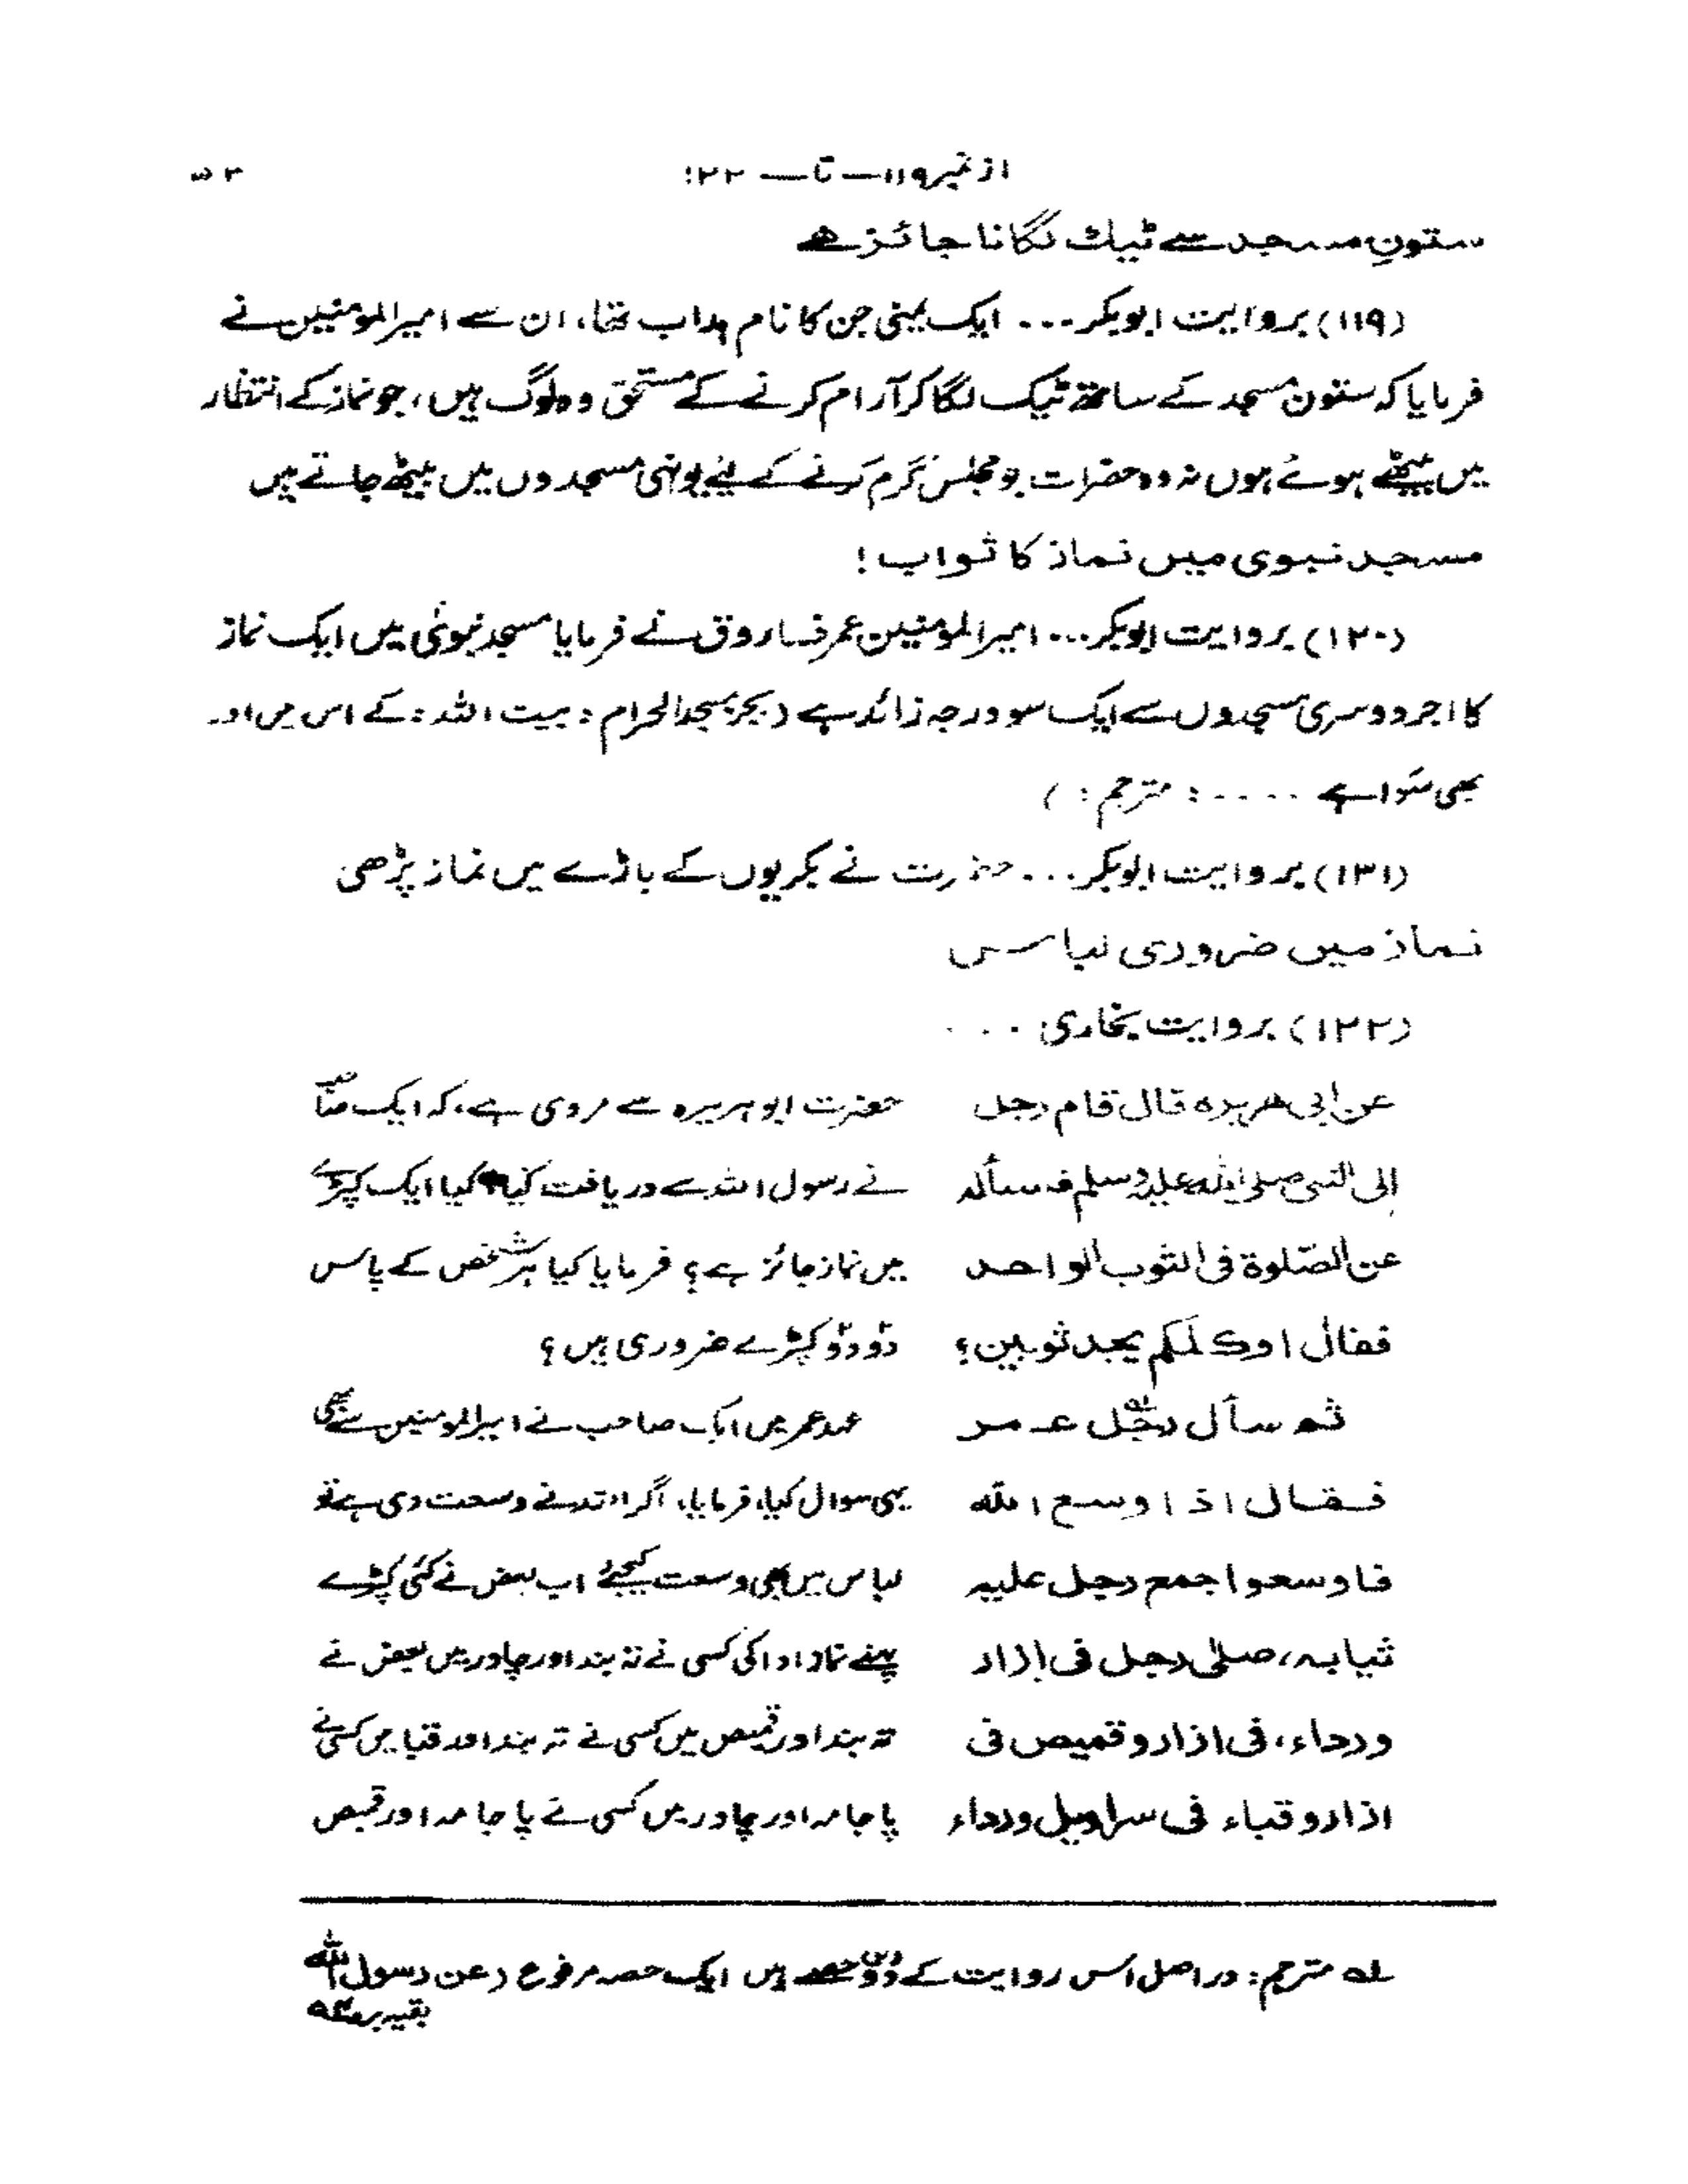 از نمبر ۱۱۹ — تا — ۱۲۲
ستونِ مسجد سے ٹیک لگانا جائز ہے
(۱۱۹) بروایت ابوبکر ... ایک یمنی جن کا نام ہداب تھا، ان سے امیرالمومنین نے
فرمایا کہ ستون مسجد کے ساتھ ٹیک لگا کر آرام کرنے کے مستحق وہ لوگ ہیں، جو نماز کے انتظار
میں بیٹھے ہوئے ہوں نہ وہ حضرات جو مجلس گرم کرنے کے لئے یونہی مسجدوں میں بیٹھ جاتے ہیں
مسجد نبوی میں نماز کا ثواب!
(۱۲۰) بروایت ابوبکر ... امیرالمومنین عمر فاروق نے فرمایا مسجد نبویؐ میں ایک نماز
کا اجر دوسری مسجدوں سے ایک سو درجہ زائد ہے (بجز مسجد الحرام : بیت اللہ : کے اس میں اور
بھی سَوا ہے ۔۔۔۔ : مترجم : )
(۱۳۱) بروایت ابوبکر ... حضرت نے بکریوں کے باڑے میں نماز پڑھی
نماز میں ضروری لباس
(۱۲۲) بروایت بخاری ...
عن ابی ھریرہ قال قام رجل حضرت ابو ہریرہ سے مروی ہے، کہ ایک صاحب
الی النبی صلی اللہ علیہ وسلم فسألہ نے رسول اللہ سے دریافت کیا کیا ایک کپڑے
عن الصّلوۃ فی الثوب الواحد میں نماز جائز ہے؟ فرمایا کیا ہر شخص کے پاس
فقال اوکلکم یجد ثوبین؟ دو دو کپڑے ضروری ہیں؟
ثم سأل رجل عمر عہد عمر میں ایک صاحب نے امیرالمومنین سے بھی
فقال اذا وسع اللہ یہی سوال کیا، فرمایا، اگر اللہ نے وسعت دی ہے تو
فاوسعوا جمع رجل علیہ لباس میں بھی وسعت کیجئے اب بعض نے کئی کپڑے
ثیابہ، صلیٰ رجل فی ازار پہنے نماز ادا کی کسی نے تہ بند اور چادر میں بعض نے
ورداء، فی ازار و قمیص فی تہ بند اور قمیص میں کسی نے تہ بند اور قبا میں کسی نے
ازار و قباء فی سراویل ورداء پاجامہ اور چادر میں کسی نے پاجامہ اور قمیص
؂۱ مترجم: دراصل اس روایت کے دو حصے ہیں ایک حصہ مرفوع (عن رسول اللہ
بقیہ بر